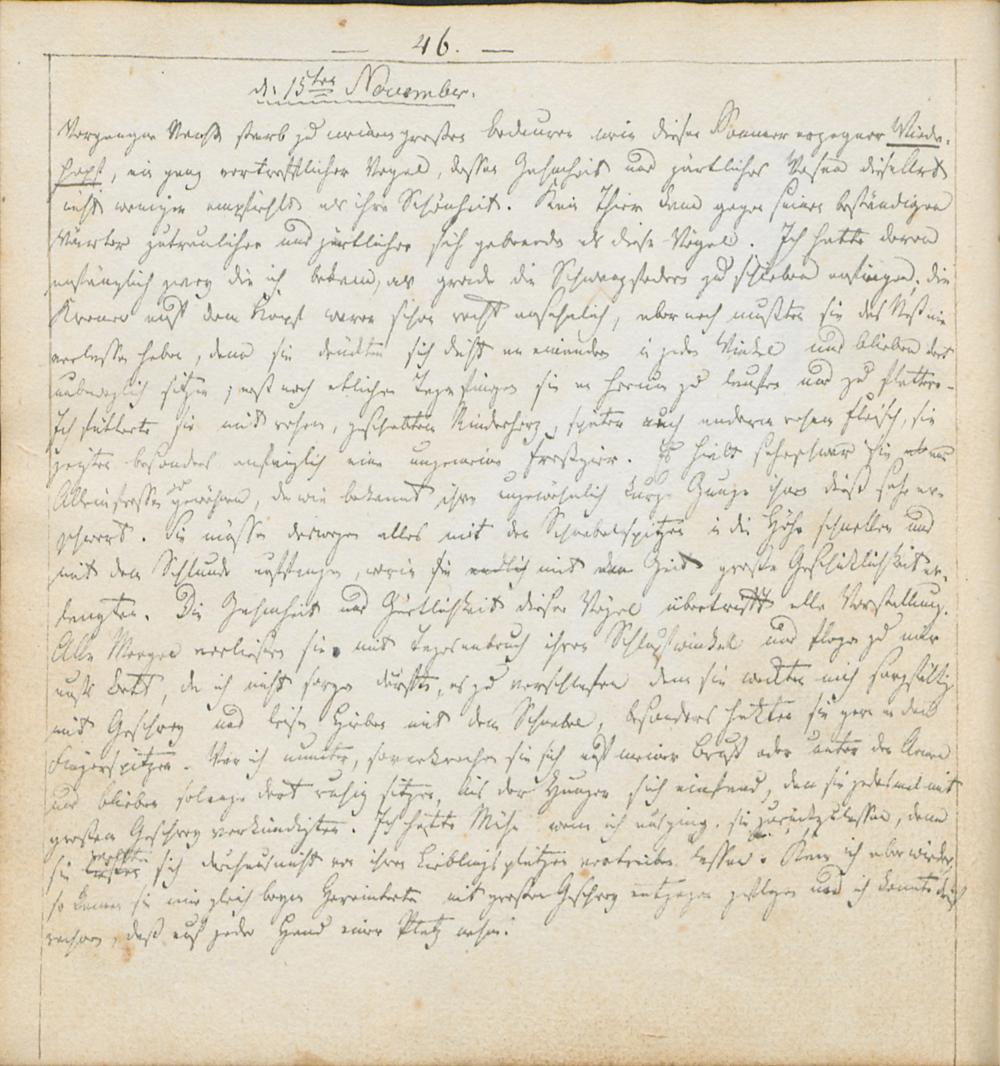 — 46. —
d. 15ten November.
Vorgangene Nacht starb zu meinem großen Bedauern mein diesen Sommer erzogener Wiede-
hopf, ein ganz vortrefflicher Vogel, dessen Zahmheit und zärtliches Wesen dieselben
nicht weniger empfiehlt als ihre Schönheit. Kein Thier kann gegen seinen beständigen
Wärter zutraulicher und zärtlicher sich gebärden als diese Vögel. Ich hatte deren
anfänglich zwey die ich bekam, als grade die Schwanzfedern zu schieben anfingen. die
Kronen auf dem Kopf waren schon recht ansehnlich, aber noch mußten sie das Nest nie
verlassen haben, denn sie drückten sich dicht an einander in jeden Winkel und blieben dort
unbeweglich sitzen; erst nach etlichen Tagen fingen sie an herum zu laufen und zu flattern.
Ich fütterte sie mit rohen, geschabten Rinderherz, später auch anderm rohen Fleisch, sie
zeigten besonders anfänglich eine ungemeine Freßgier. Es hielt sehr schwer sie ans
Alleinfressen gewöhnen, da wie bekannt ihre ungewöhnlich kurze Zunge ihnen dieß sehr er-
schwert. Sie müssen deswegen alles mit der Schnabelspitze in die Höhe schnellen und
mit dem Schlunde auffangen, worin sie endlich mit der Zeit große Geschicklichkeit er-
langten. Die Zahmheit und Zärtlichkeit dieser Vögel übertrifft alle Vorstellung.
Alle Morgen verließen sie mit Tagesanbruch ihren Schlafwinkel und flogen zu mir
aufs Bett, da ich nicht sorgen durfte, es zu verschlafen denn sie weckten mich sorgfältig
mit Geschrey und leisen Hieben mit dem Schnabel, besonders hackten sie gern in den
Fingerspitzen. War ich munter, so verkrochen sie sich auf meiner Brust oder unter den Armen
und blieben solange dort ruhig sitzen, bis der Hunger sich einfand, den sie jedesmal mit
großem Geschrey verkündigten. Ich hatte Mühe wenn ich ausging, sie zurückzulassen, denn
sie wollten sich durchaus nicht von ihren Lieblingsplätzen vertreiben lassen. Kam ich aber wieder,
so kamen sie mir gleich beym Hereintreten mit großem Geschrey entgegen geflogen und ich konnte drauf
rechnen, daß auf jeder Hand einer Platz nahm.